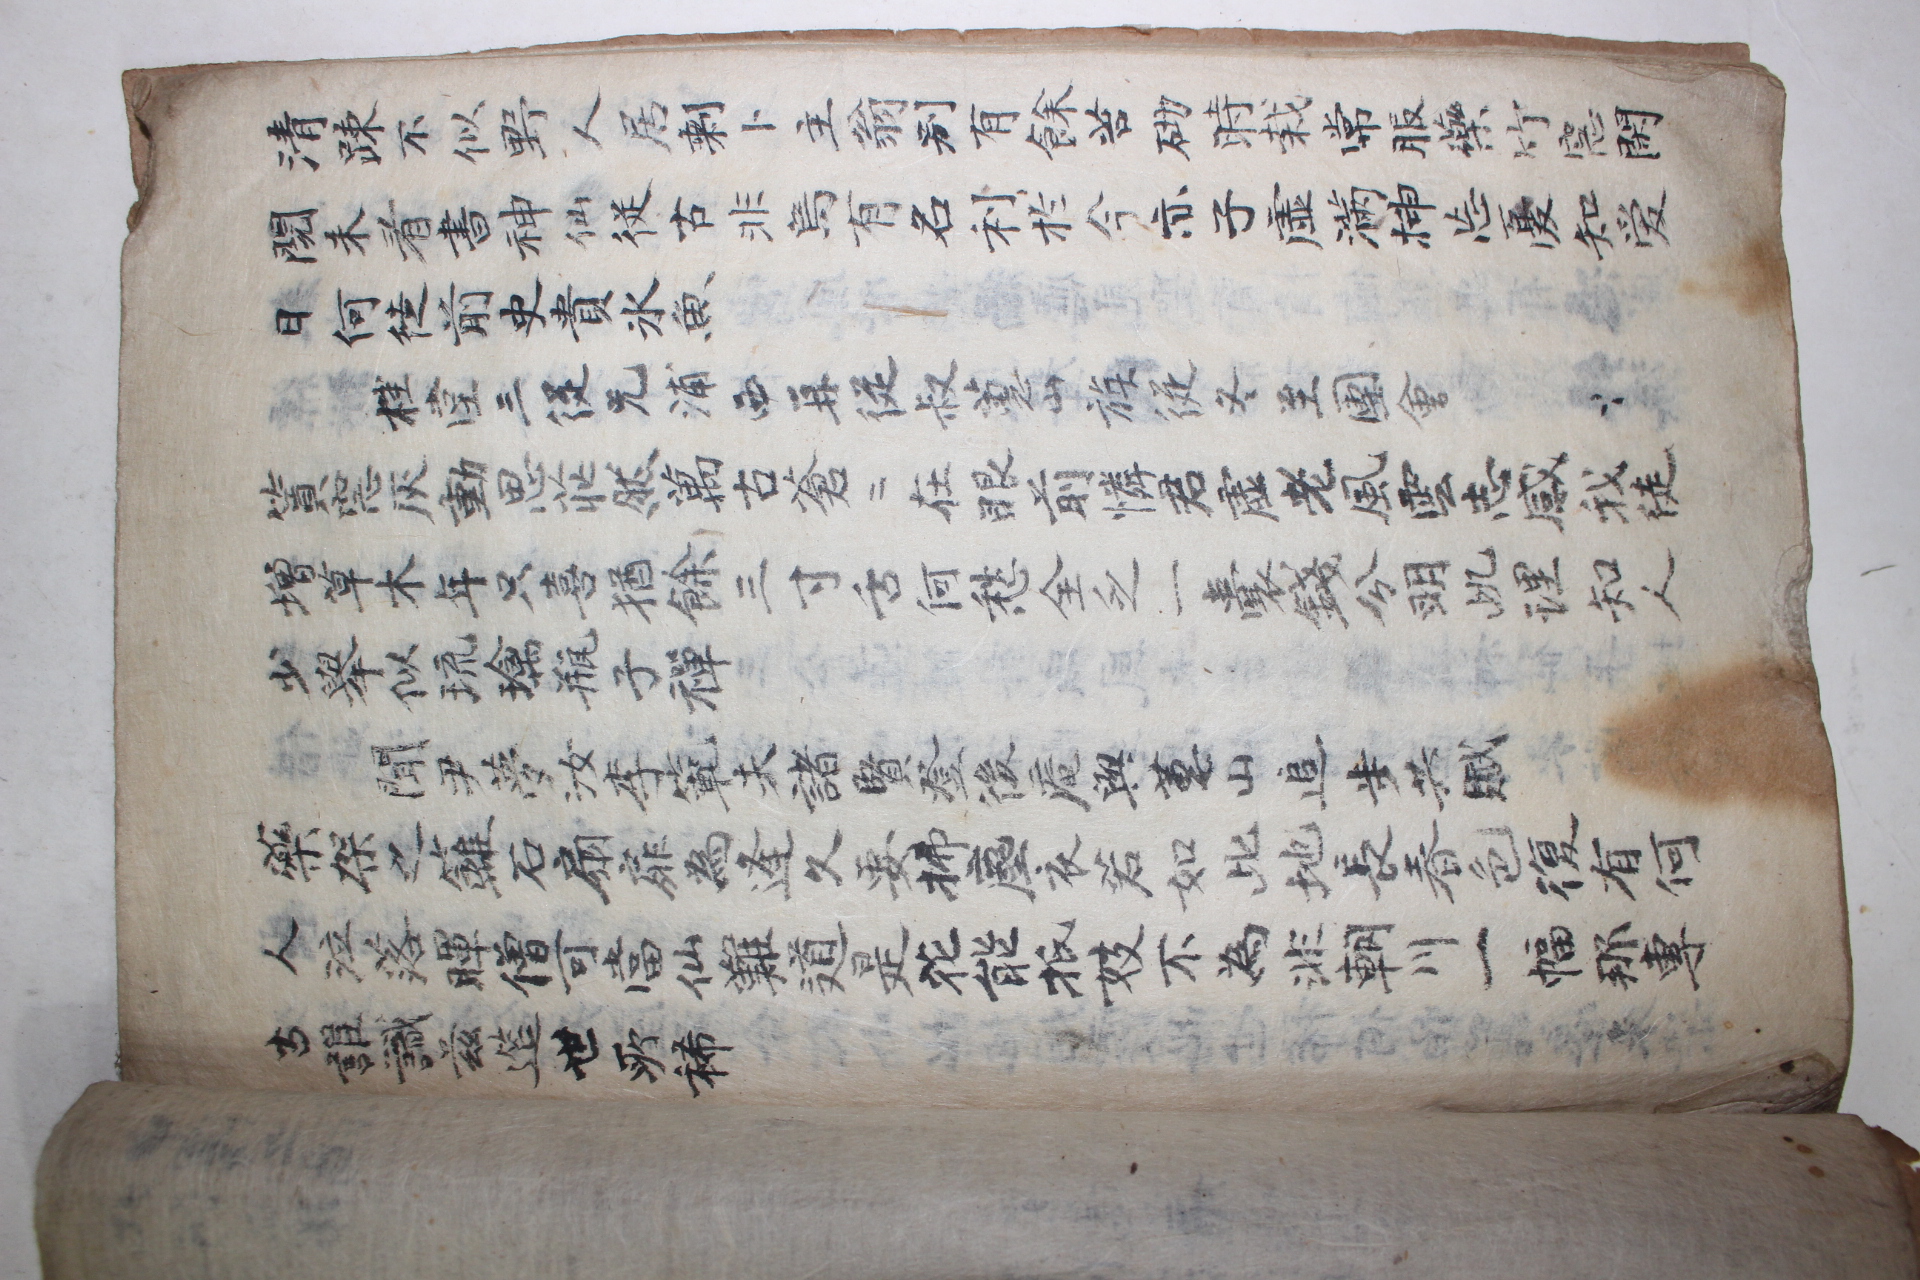 清踈不似野人居剩卜主翁別有餘苔砌時栽常服藥竹窓閑
閱未看書神仙從古非烏有名利於今亦子虛滿揷忘憂知愛
日何徒前史貴氷魚
桂堂三從兄浦西再從叔蕙山族從冬至團會
簣窓灰動思茫然萬古蒼〻在眼前憐君虛老風雲志感我徒
增草木年只喜猶餘三寸舌何愁全乏一囊錢分明此理知人
少擧似琉璃甁子禪
聞尹夢汝李範夫諸賢登後庵與蕙山追步共賦
藥架之籬石扇扉為逢久要拂塵衣若如此地長春色復有何
人泣落暉僧可當仙難道是花能抵妓不為非輞川一幅那專
古誰識茲筵世所稀